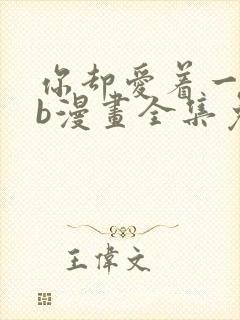 你却愛着一
b漫畫全集
王偉文